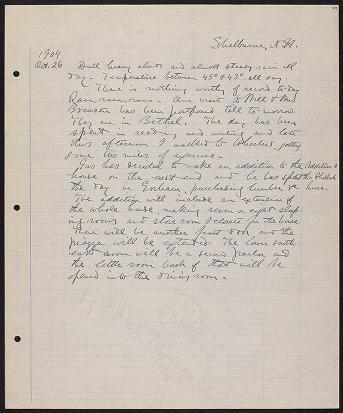 Shelburne, N.H.
1904
Oct. 26
Dull heavy clouds and almost steady rain all
day - Temperature between 45° & 43° all day.
There is nothing worthy of record to-day
Rain, rain, rain - Our visit to Will & Mrs
Brewster has been postponed till to-morrow
They are in Bethel. The day has been
spent in reading and writing and late
this afternoon I walked to Wheeler's, getting
some two miles of exercise -
Gus has decided to make an addition to the
house on the west side and he has spent
the day in Gorham, purchasing lumber & lime.
The addition will include an extension of
the whole house, making seven or eight sleep-
ing rooms and store room & closets for the house.
There will be another front door and the
piazza will be extended. The lower south
east room will be a second parlor and
the little room back of that will be
opened into the dining room -